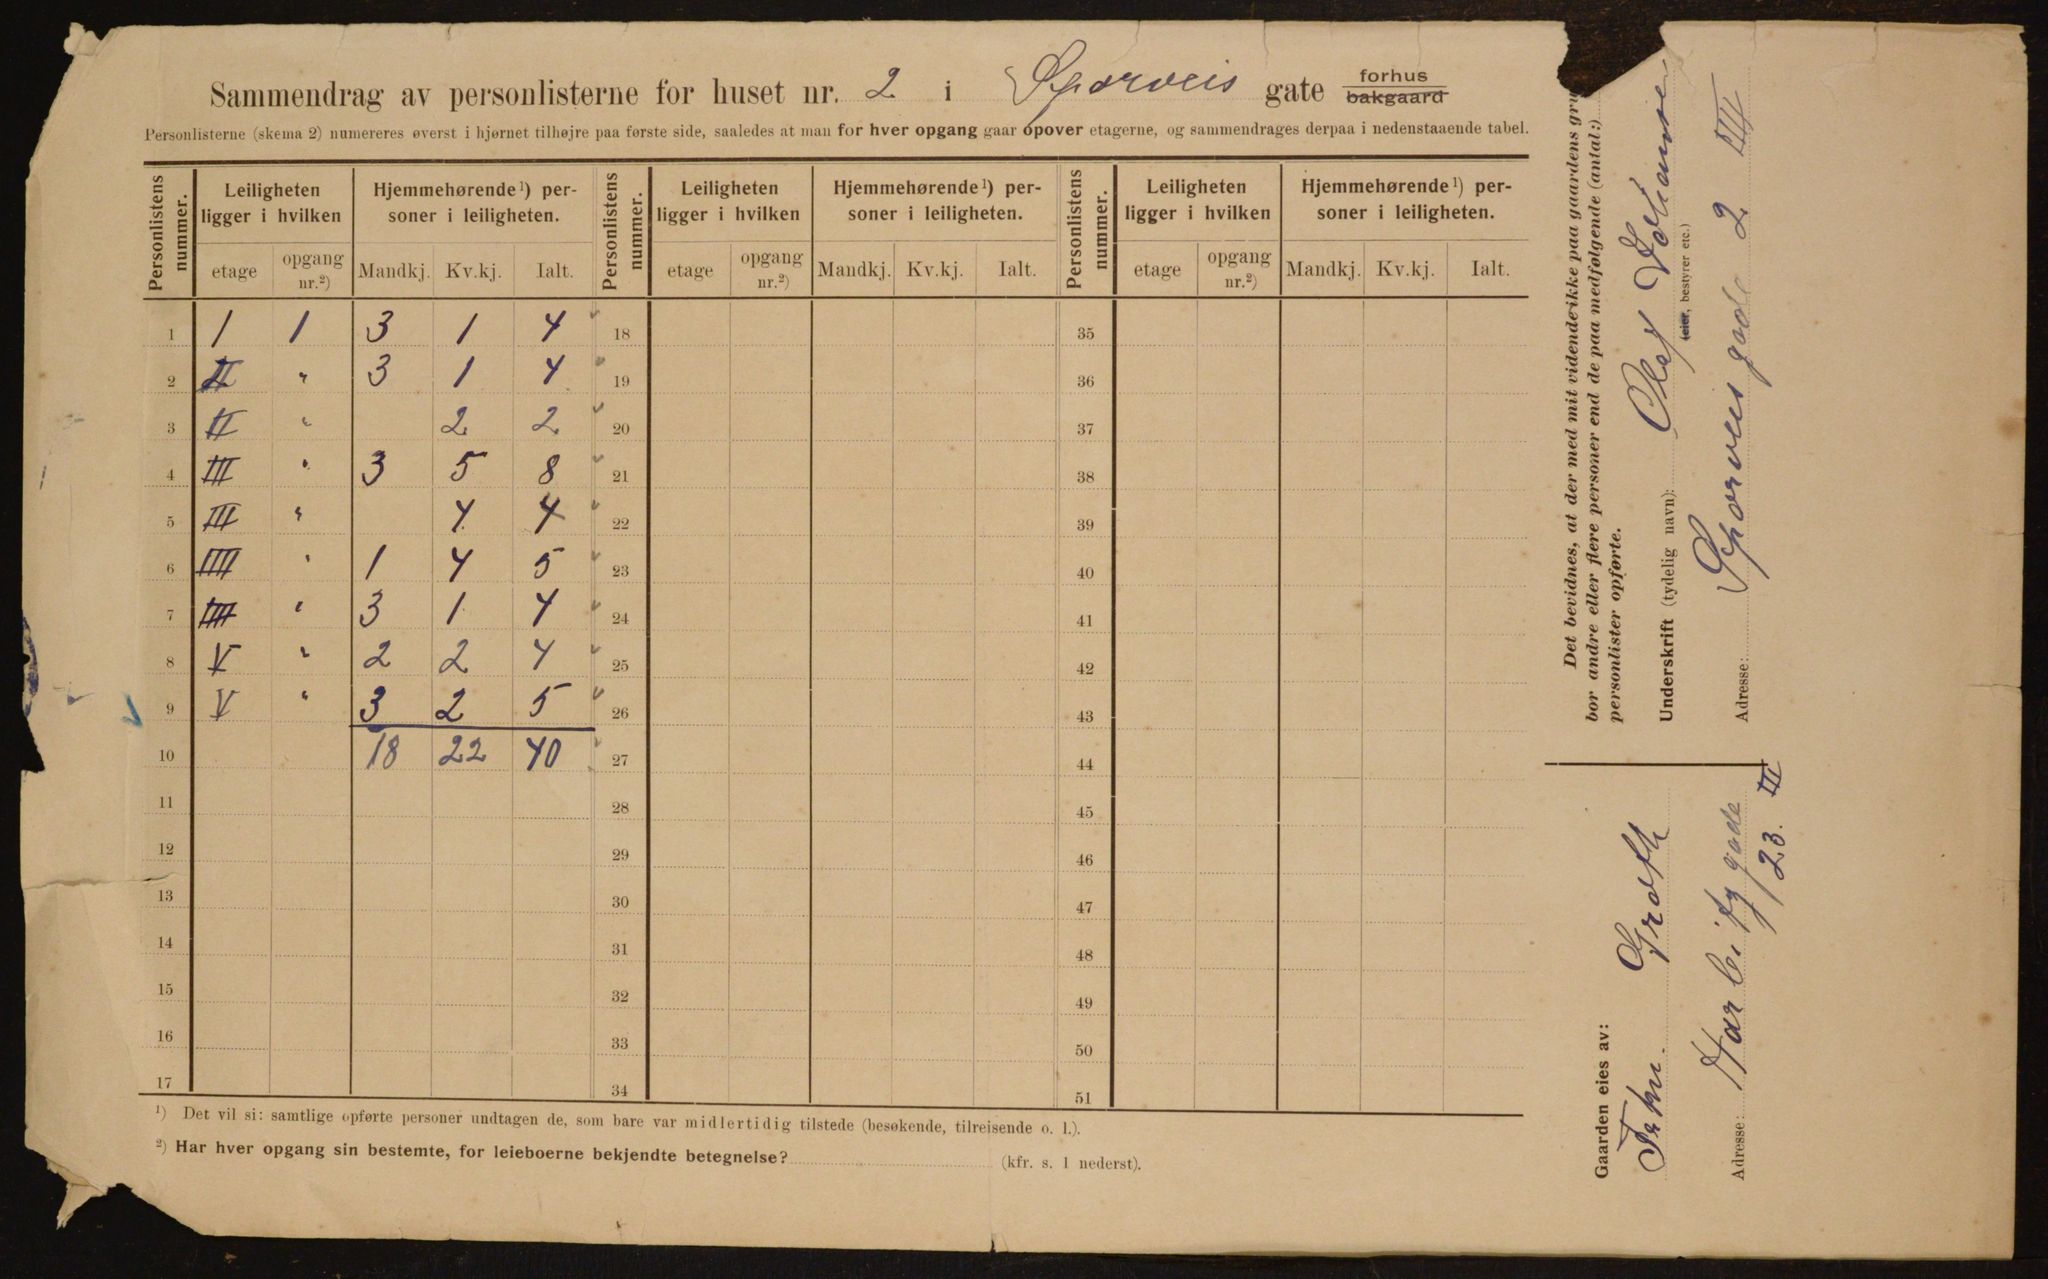 Sammendrag av personlisterne for huset nr. 2 i Sporveis gate forhus bakgaard
Personlisterne (skema 2) numereres øverst i hjørnet tilhøjre paa første side, saaledes at man for hver opgang gaar opover etagerne, og sammendrages derpaa i nedenstaaende tabel.
Personlistens nummer. Leiligheten ligger i hvilken Hjemmehørende¹) personer i leiligheten. Personlistens nummer. Leiligheten ligger i hvilken Hjemmehørende¹) personer i leiligheten. Personlistens nummer. Leiligheten ligger i hvilken Hjemmehørende¹) personer i leiligheten.
etage opgang nr.²) Mandkj. Kv.kj. Ialt. etage opgang nr.²) Mandkj. Kv.kj. Ialt. etage opgang nr.²) Mandkj. Kv.kj. Ialt.
1 I 1 3 1 4 18 35
2 II " 3 1 4 19 36
3 II " 2 2 20 37
4 III " 3 5 8 21 38
5 III " 4 4 22 39
6 IIII " 1 4 5 23 40
7 IIII " 3 1 4 24 41
8 V " 2 2 4 25 42
9 V " 3 2 5 26 43
10 18 22 40 27 44
11 28 45
12 29 46
13 30 47
14 31 48
15 32 49
16 33 50
17 34 51
¹) Det vil si: samtlige opførte personer undtagen de, som bare var midlertidig tilstede (besøkende, tilreisende o. l.).
²) Har hver opgang sin bestemte, for leieboerne bekjendte betegnelse? (kfr. s. 1 nederst).
Det bevidnes, at der med mit vidende ikke paa gaardens gru
bor andre eller flere personer end de paa medfølgende (antal:)
personlister opførte.
Underskrift (tydelig navn): Olaf Johansen
(eier, bestyrer etc.)
Adresse: Sporveis gade 2 III
Gaarden eies av:
Groth
Adresse: Harbitz gade
23. III